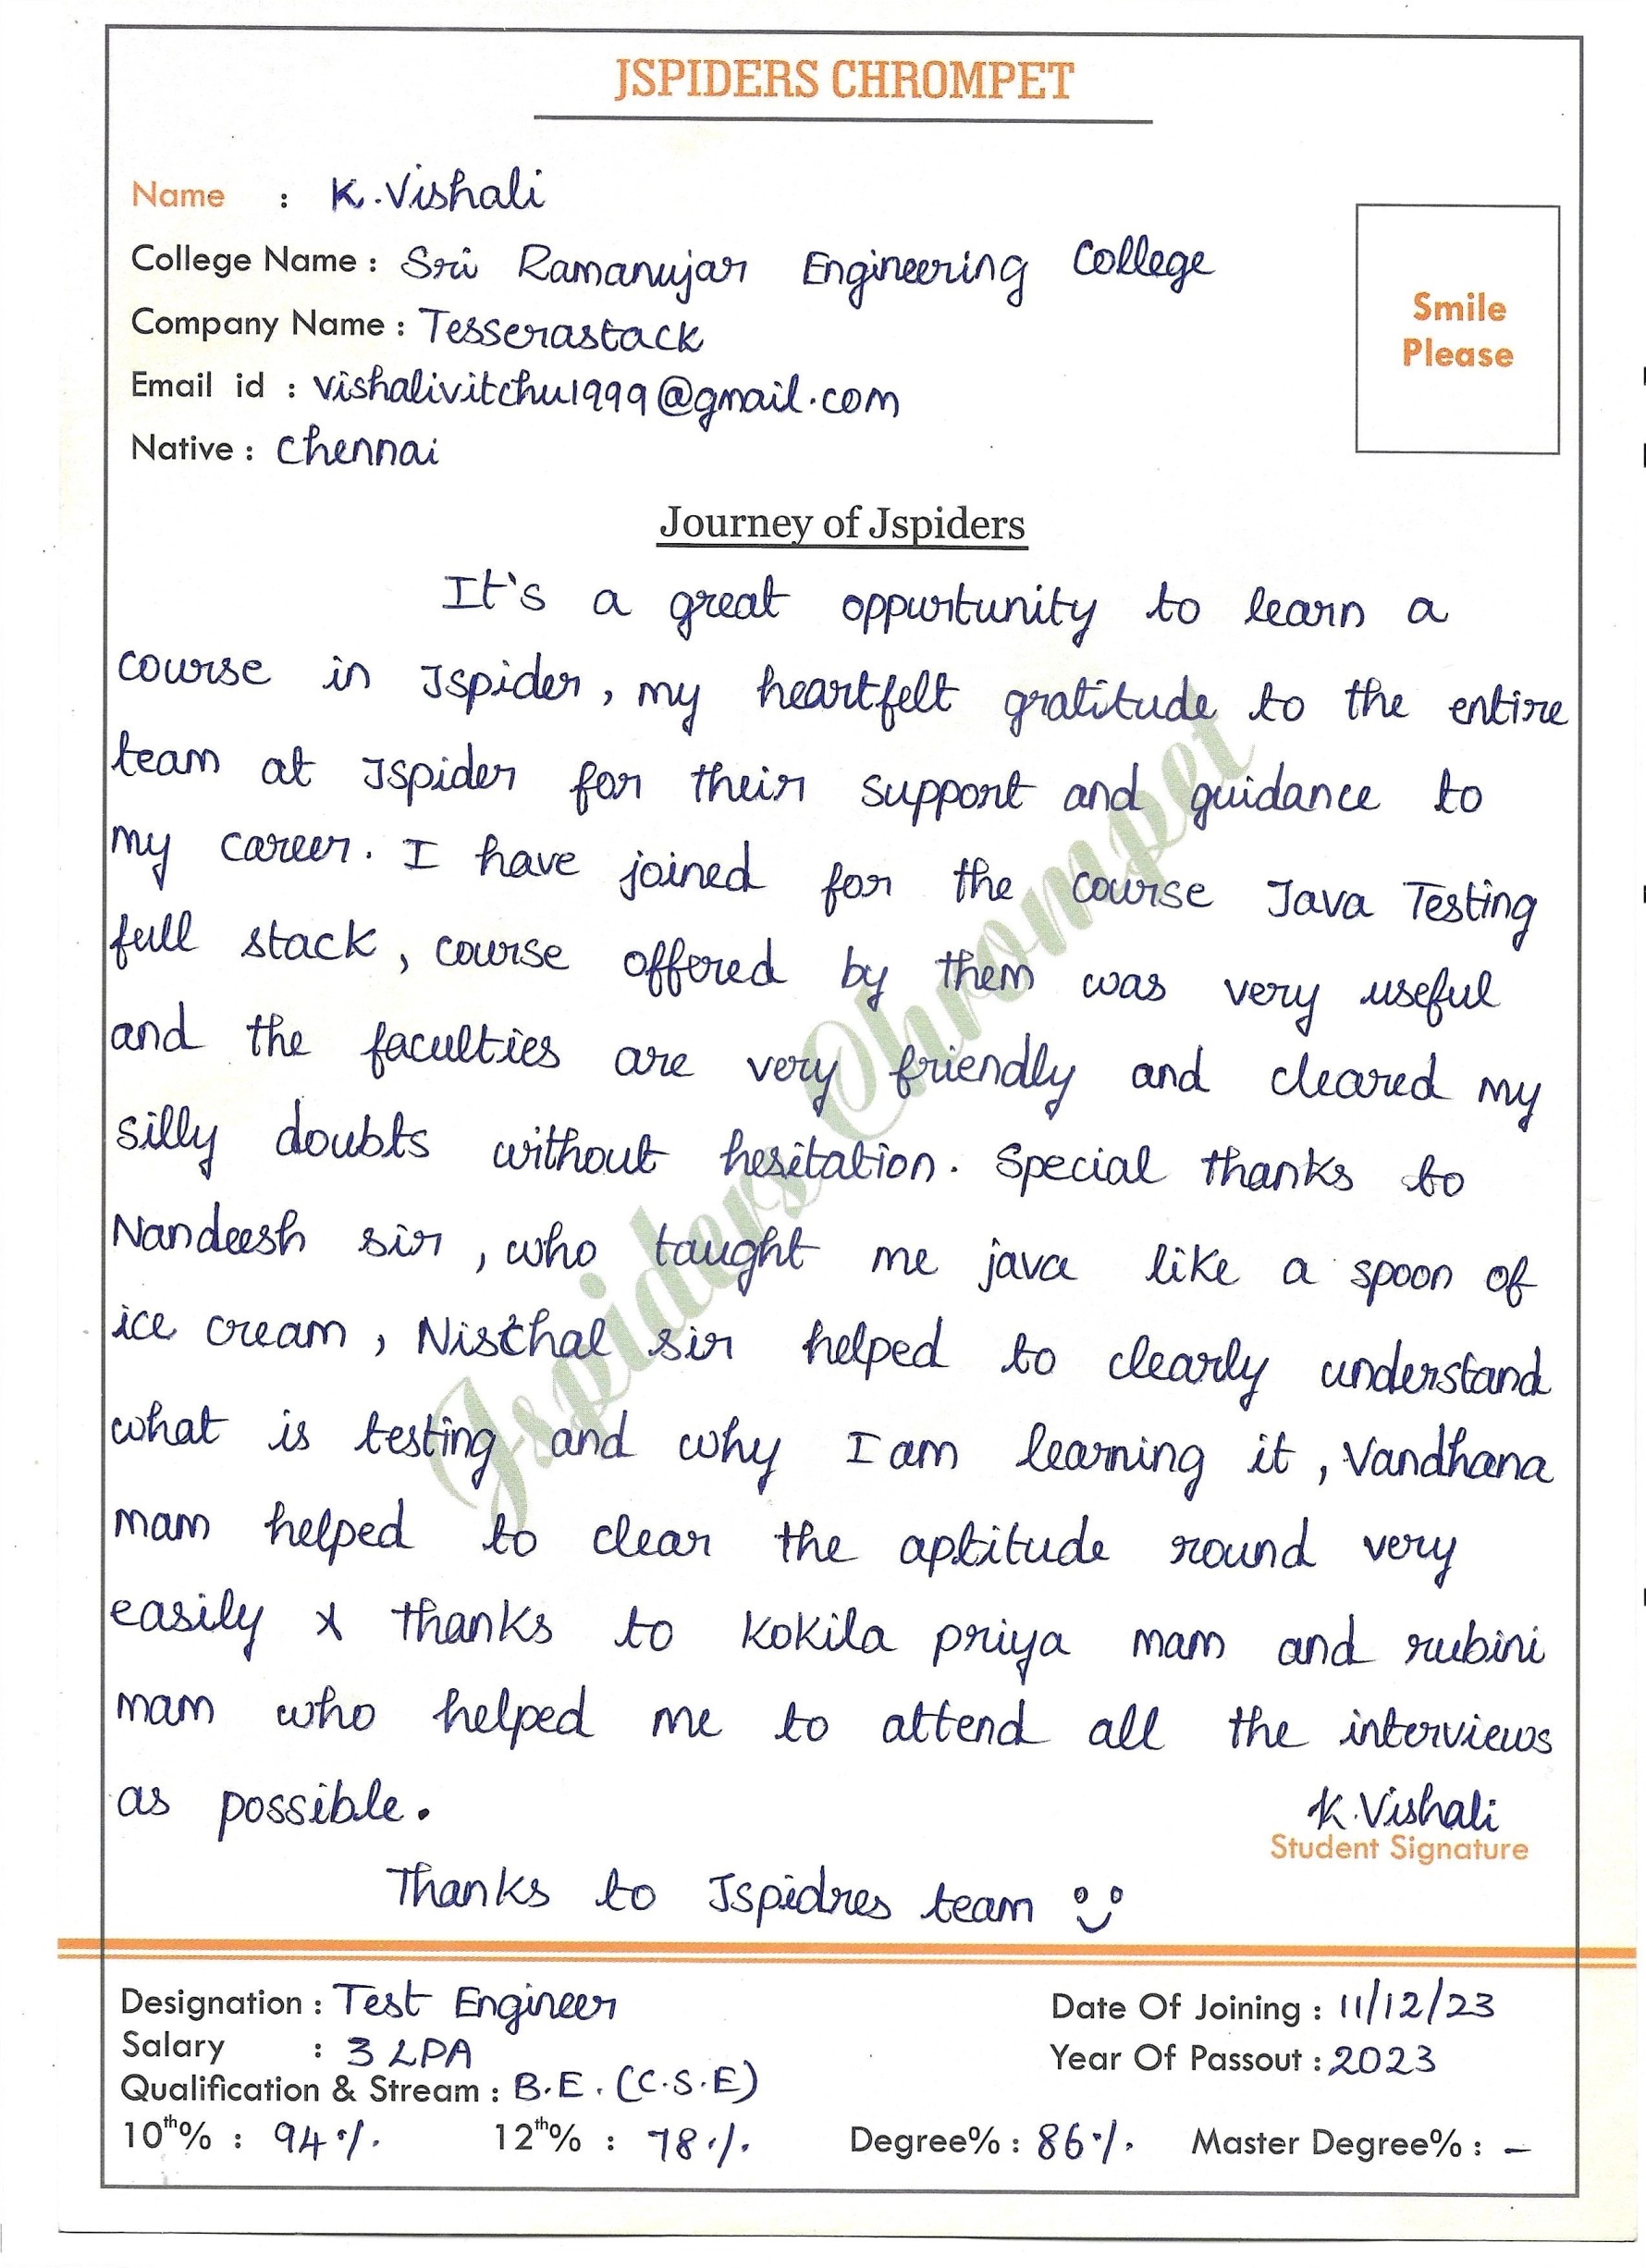 JSPIDERS CHROMPET
Name : K.Vishali
College Name : Sri Ramanujar Engineering College
Company Name : Tesserastack
Smile
Please
Email id : vishalivitchu1999@gmail.com
Native : Chennai
Journey of Jspiders
It's a great oppurtunity to learn a
course in Jspider, my heartfelt gratitude to the entire
team at Jspider for their support and guidance to
my career. I have joined for the course Java Testing
full stack, course offered by them was very useful
and the faculties are very friendly and cleared my
silly doubts without hesitation. Special thanks to
Nandeesh sir, who taught me java like a spoon of
ice cream, Nisthal sir helped to clearly understand
what is testing and why I am learning it, Vandhana
mam helped to clear the aptitude round very
easily & thanks to Kokila priya mam and rubini
mam who helped me to attend all the interviews
as possible.
K.Vishali
Student Signature
Thanks to Jspidres team
Jspiders Chrompet
Designation : Test Engineer Date Of Joining : 11/12/23
Salary : 3 LPA Year Of Passout : 2023
Qualification & Stream : B.E. (C.S.E)
10th% : 94% 12th% : 78% Degree% : 86% Master Degree% : -